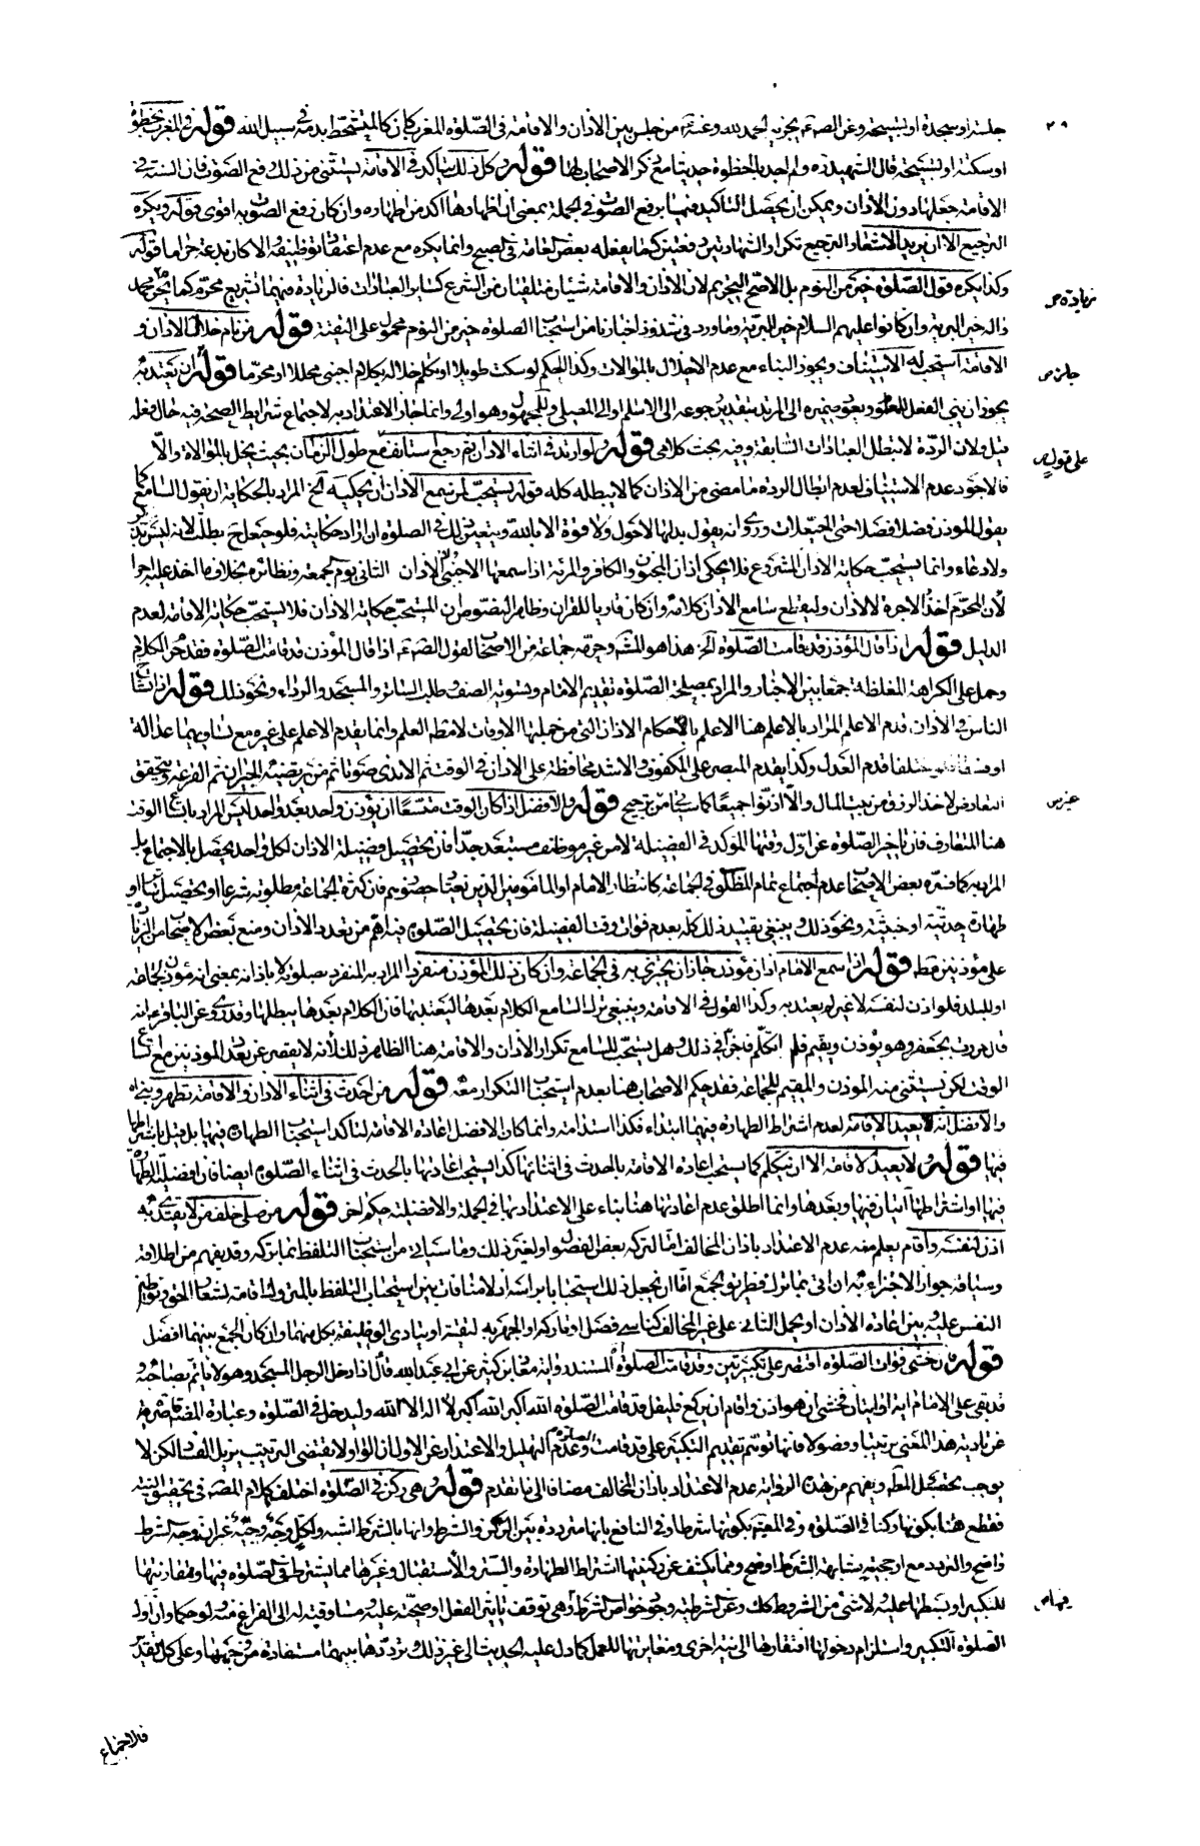 جلسة او سجدة او تسبيحة وعن الصادق ع يجزيه الحمد لله وعنه ع من جلس بين الاذان والاقامة فى الصلوة المغرب كان كالمتشحط بدمه فى سبيل الله قوله فى المغرب بخطوة
او سكتة او تسبيحة قال الشهيد ره ولم اجد بالخطوة حديثا مع ذكر الاصحاب لها قوله وكل ذلك يتاكد فى الاقامة يستثنى من ذلك رفع الصوت فان السنة فى
الاقامة جعلها دون الاذان ويمكن ان يحصل التاكيد فيها برفع الصوت فى الجملة بمعنى ان اظهارها اكد من اظهاره وان كان رفع الصوت به اقوى قوله ويكره
الترجيع الا ان يريد الاشعار الترجيع تكرار الشهادتين دفعتين كما يفعله بعض العامة فى الصبح وانما يكره مع عدم اعتقاد توظيفه والا كان بدعة حراما قوله
وكذا يكره قول الصلوة خير من النوم بل الاصح التحريم لان الاذان والاقامة شيئان متلقيان من الشرع كساير العبادات فالزيادة فيهما تشريع محرم كما يحرم محمد
واله خير البرية وان كانوا عليهم السلام خير البرية وما ورد فى شذوذ اخبارنا من استحباب الصلوة خير من النوم محمول على التقية قوله من نام خلال الاذان و
الاقامة استحب له الاستيناف ويجوز البناء مع عدم الاخلال بالموالات وكذا الحكم لو سكت طويلا او تكلم خلاله بكلام اجنبى محللا او محرما قوله ان يعتد به
يجوز ان يبنى الفعل للمعلوم ويعود ضميره الى المرتد بتقدير رجوعه الى الاسلام او الى المصلى وللمجهول وهو اولى وانما جاز الاعتداد به لاجتماع شرايط الصحة فيه حال فعله
قيل ولان الردة لا تبطل العبادات السابقة وفيه بحث كلامى قوله ولو ارتد فى اثناء الاذان ثم رجع استانف مع طول الزمان بحيث يخل بالموالاة والا
فالاجود عدم الاستيناف لعدم ابطال الردة ما مضى من الاذان كما لا يبطله كله قوله يستحب لمن سمع الاذان ان يحكيه الخ المراد بالحكاية ان يقول السامع كما
يقول المؤذن فصلا فصلا حتى الحيعلات وروى انه يقول بدلها لا حول ولا قوة الا بالله ويتعين ذلك فى الصلوة ان اراد حكايته فلو حيعل ح بطلت لانه ليس بذكر
ولا دعاء وانما يستحب حكاية الاذان المشروع فلا يحكى اذان المجنون والكافر والمرئة اذا سمعها الاجنبى والاذان الثانى يوم الجمعة ونظائره بخلاف ما اخذ عليه اجرا
لان المحرم اخذ الاجرة لا الاذان وليقطع سامع الاذان كلامه وان كان قاريا للقران وظاهر النصوص ان المستحب حكاية الاذان فلا يستحب حكاية الاقامة لعدم
الدليل قوله اذا قال المؤذن قد قامت الصلوة الخ هذا هو المشهور وحرمه جماعة من الاصحاب لقول الصادق ع اذا قال المؤذن قد قامت الصلوة فقد حرم الكلام
وحمل على الكراهة المغلظة جمعا بين الاخبار والمراد بمصلحة الصلوة تقديم الامام وتسوية الصف وطلب الساتر والمسجد والرداء ونحو ذلك قوله اذا تشاح
الناس فى الاذان قدم الاعلم المراد بالاعلم هنا الاعلم باحكام الاذان التى من جملتها الاوقات لا مطلق العلم وانما يقدم الاعلم على غيره مع تساويهما عدالة
قدم العدل وكذا يقدم المبصر على المكفوف والاشد محافظة على الاذان فى الوقت ثم الاندى صوتا ثم من يرتضيه الجيران ثم القرعة ويتحقق
التعارض لاخذ الرزق من بيت المال والا اذنوا جميعا كما سيجئ من ترجيح قوله والافضل اذا كان الوقت متسعا ان يؤذن واحد بعد واحد ليس المراد باتساع الوقت
هنا المتعارف فان تاخير الصلوة عن اول وقتها المؤكد فى الفضيلة لامر غير موظف مستبعد جدا فان تحصيل فضيلة الاذان لكل واحد يحصل بالاجتماع بل
المراد به كما فسره بعض الاصحاب عدم اجتماع تمام المطلوب فى الجماعة كانتظار الامام او المامومين الذين يعتاد حضورهم فان كثرة الجماعة مطلوبة شرعا او تحصيل ساتر او
طهارة حدثية او خبثية ونحو ذلك وينبغى تقييد ذلك كله بعدم فوات وقت الفضيلة فان تحصيل الصلوة فيه اهم من تعدد الاذان ومنع بعض الاصحاب من الزيادة
على مؤذنين فقط قوله اذا سمع الامام اذان مؤذن جاز ان يجتزى به فى الجماعة وان كان ذلك المؤذن منفردا المراد به المنفرد بصلوته لا باذانه بمعنى انه مؤذن لجماعة
او للبلد فلو اذن لنفسه لا غير لم يعتد به وكذا القول فى الاقامة وينبغى ترك السامع الكلام بعدها ليعتد بها فان الكلام بعدها يبطلها وقد روى عن الباقر ع انه
قال مر بى جعفر وهو يؤذن ويقيم فلم اتكلم فاجزأنى ذلك وهل يستحب للسامع تكرار الاذان والاقامة هنا الظاهر ذلك لانه لا يقصر عن تعدد المؤذنين مع اتساع
الوقت لكن يستثنى منه المؤذن والمقيم للجماعة فقد حكم الاصحاب هنا بعدم استحباب التكرار معه قوله من احدث فى اثناء الاذان والاقامة تطهر وبنى
والافضل انه لا يعيد الاقامة لعدم اشتراط الطهارة فيهما ابتداء فكذا استدامة وانما كان الافضل اعادة الاقامة لتاكد استحباب الطهارة فيها بل قيل باشتراطها
فيها قوله ولا يعيد الاقامة الا ان يتكلم كما يستحب اعادة الاقامة بالحدث فى اثنائها كذا يستحب اعادتها بالحدث فى اثناء الصلوة ايضا فان افضلية الطهارة
فيها او اشتراطها آتيان فيها وبعدها وانما اطلق عدم اعادتها هنا بناء على الاعتداد بها فى الجملة والافضلية حكم اخر قوله من صلى خلف من لا يقتدى به
اذن لنفسه واقام يعلم منه عدم الاعتداد باذان المخالف اما لتركه بعض الفصول او لغير ذلك وما سياتى من استحباب التلفظ بما يتركه وقد يفهم من اطلاقه
وسياقه جواز الاجتزاء به ان اتى بما يترك فطريق الجمع اما ان يجعل ذلك مستحبا برأسه اذ لا منافات بين استحباب التلفظ بالمتروك اقامة لشعار الحق وتوطين
النفس عليه وبين اعادة الاذان او يحمل الثانى على غير المخالف كناسى فصل او تاركه او الجهر به لتقية او يتادى الوظيفة بكل منهما وان كان الجمع بينهما افضل
قوله فان خشى فوات الصلوة اقتصر على تكبيرتين وقد قامت الصلوة المستند رواية معاذ بن كثير عن ابى عبد الله قال اذا دخل الرجل المسجد وهو لا ياتم بصاحبه و
قد بقى على الامام اية او ايتان فخشى ان هو اذن واقام ان يركع فليقل قد قامت الصلوة الله اكبر الله اكبر لا اله الا الله وليدخل فى الصلوة وعبارة المصنف قاصرة
عن تادية هذا المعنى ترتيبا وفصولا فانها توهم تقديم التكبير على قد قامت وعدم التهليل والاعتذار عن الاول بان الواو لا يقتضى الترتيب يزيل الفساد لكن لا
يوجب تحصيل المطلوب ويفهم من هذه الرواية عدم الاعتداد باذان المخالف مضافا الى ما تقدم قوله وهى ركن فى الصلوة اختلف كلام المصنف فى تحقيق النية
فقطع هنا بكونها ركنا فى الصلوة وفى المعتبر بكونها شرطا وفى النافع بانها مترددة بين الركن والشرط وانها بالشرط اشبه ولكل وجه وجيه غير ان وجه الشرط
واضح والتردد مع ارجحية مشابهة الشرط اوضح ومما يكشف عن ركنيتها اشتراط الطهارة والستر والاستقبال وغيرها مما يشترط فى الصلوة فيها ومقارنتها
للتكبير او بسطها عليه ولا شئ من الشروط كذلك وعن شرطيتها وجود خواص الشرط وهى توقف تاثير الفعل او صحته عليه ومساوقته له الى الفراغ منه ولو حكما وان اول
الصلوة التكبير واستلزام دخولها افتقارها الى نية اخرى ومغايرتها للعمل كما دل عليه الحديث الى غير ذلك وترددها بينهما مستفادة من وجهها وعلى كل تقدير
زيادة ص
جلزص
على قول ص
خبر ص
فيها ص
فلا اجماع